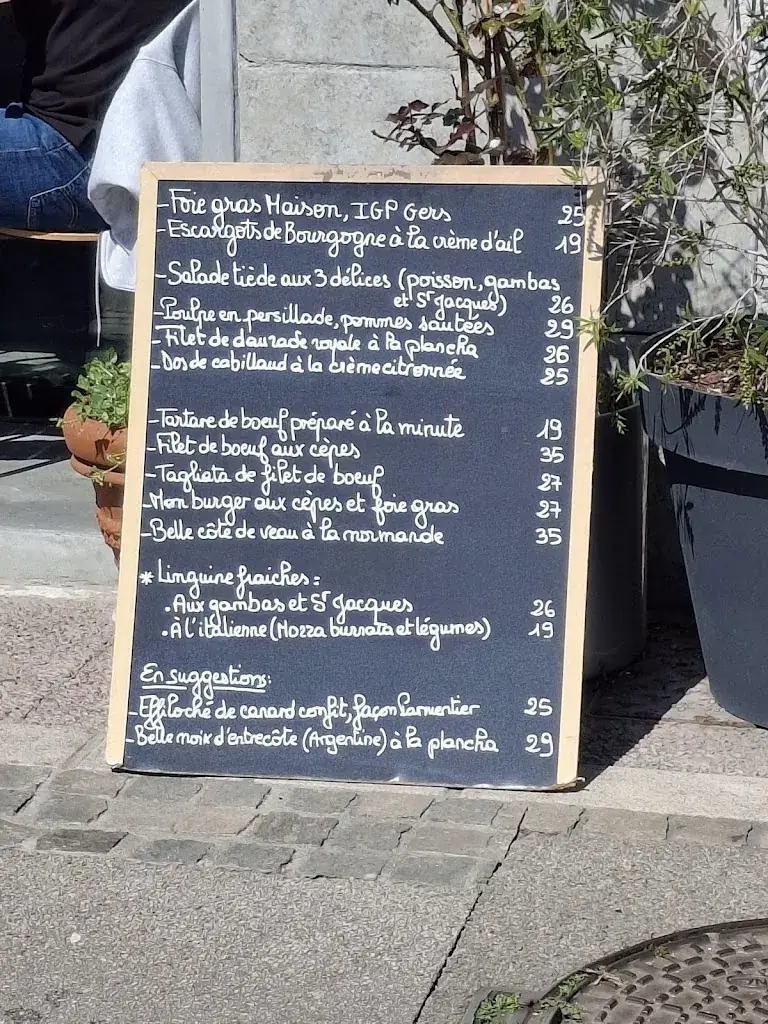 -Foie gras Maison, IGP Gers 25
-Escargots de Bourgogne à la crème d'ail 19
-Salade tiède aux 3 délices (poisson, gambas
et St Jacques) 26
-Poulpe en persillade, pommes sautées 29
-Filet de daurade royale à la plancha 26
-Dos de cabillaud à la crème citronnée 25
-Tartare de boeuf préparé à la minute 19
-Filet de boeuf aux cèpes 35
-Tagliata de filet de boeuf 27
-Mon burger aux cèpes et foie gras 27
-Belle côte de veau à la normande 35
* Linguine fraiches:
. Aux gambas et St Jacques 26
. À l'italienne (Mozza burrata et légumes) 19
En suggestions:
-Effiloché de canard confit, façon Parmentier 25
-Belle noix d'entrecôte (Argentine) à la plancha 29